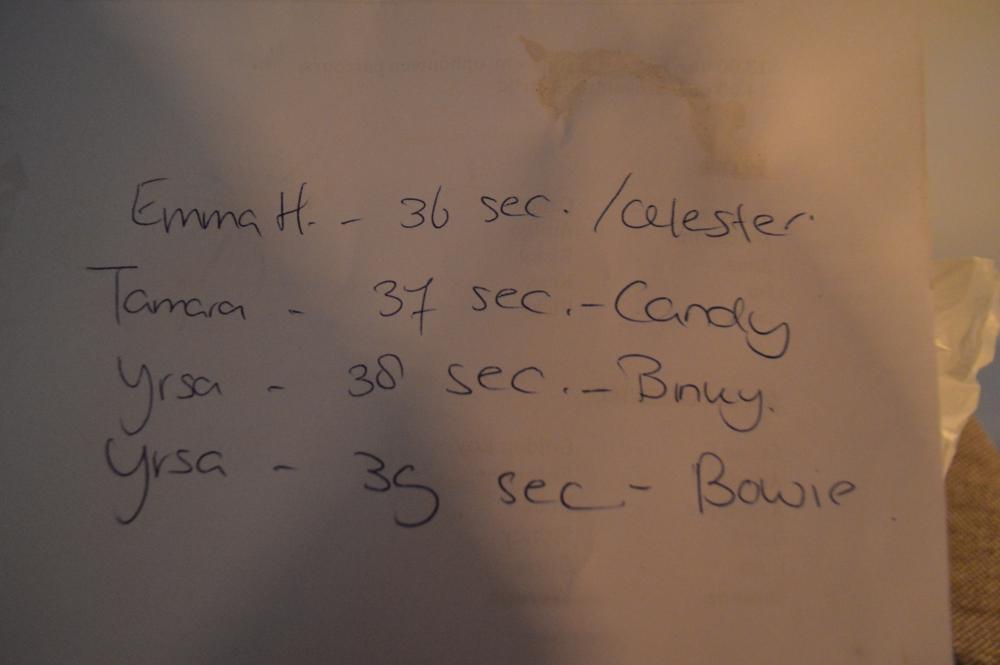 Emma H. - 36 sec. /Celester.
Tamara - 37 sec. - Candy
Yrsa - 38 sec. -
Yrsa - sec - Bowie